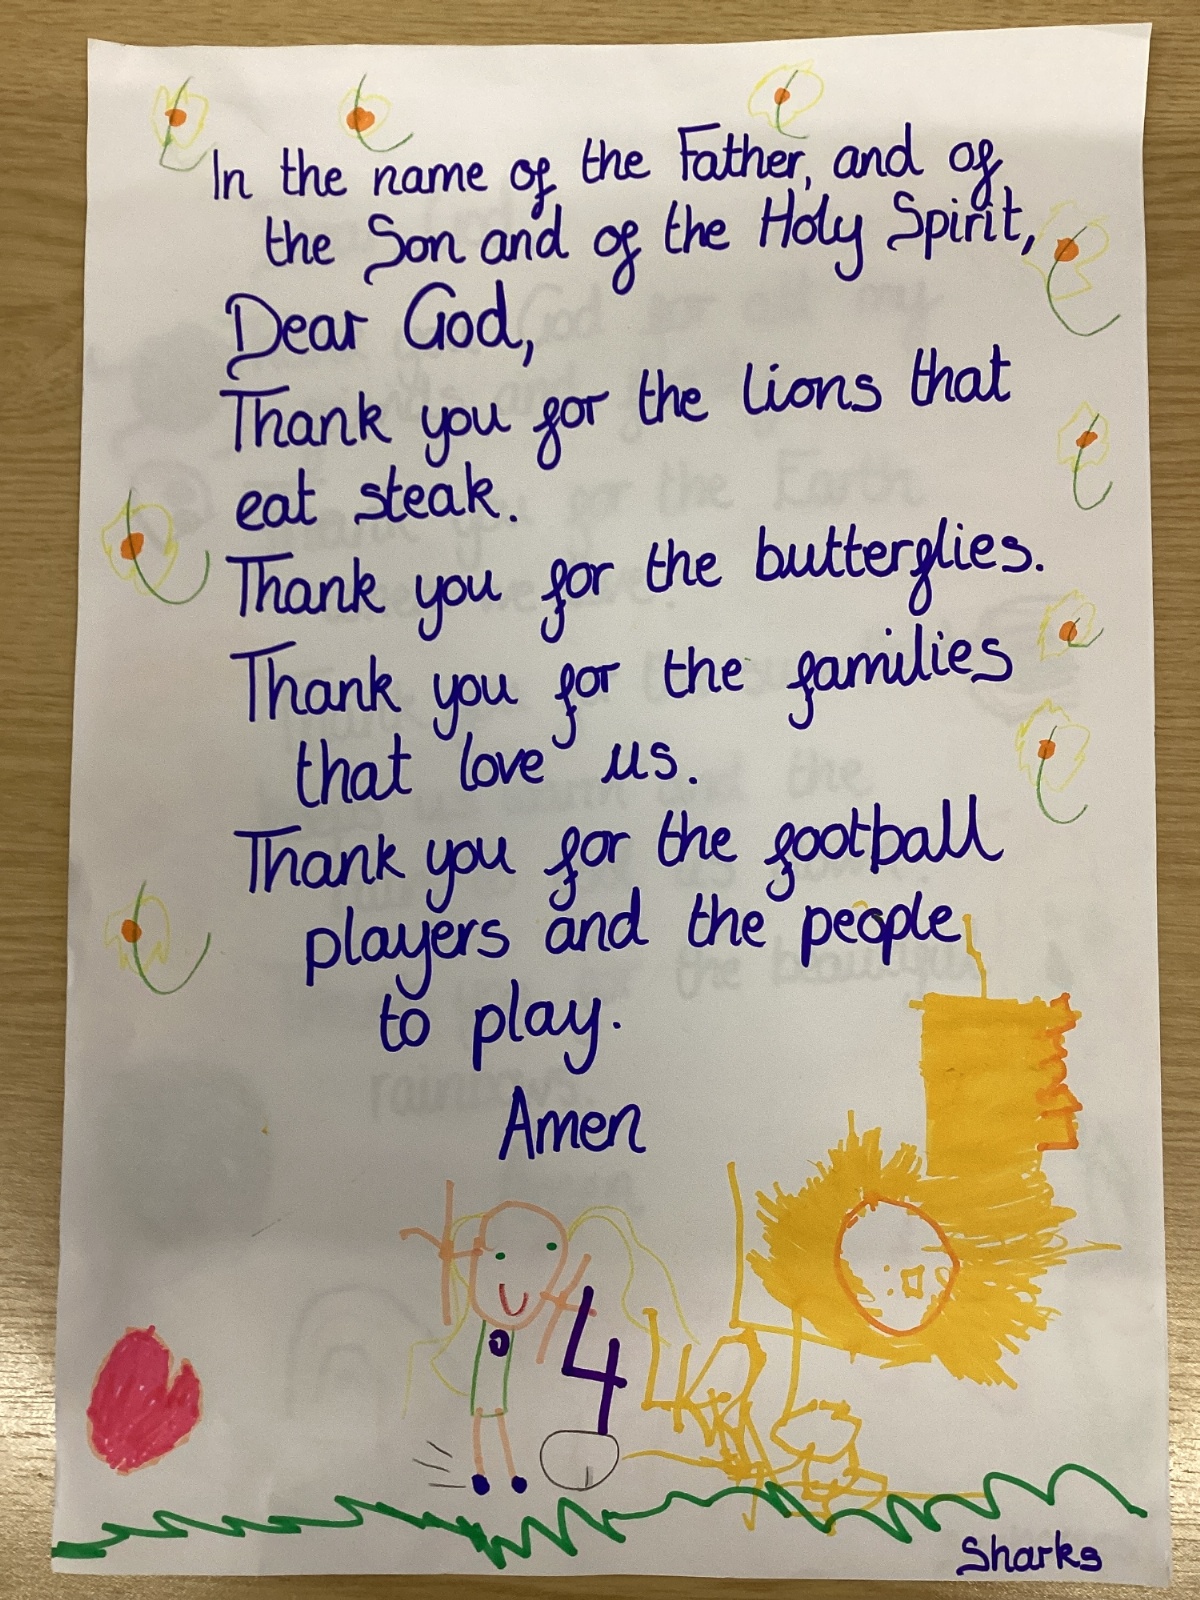 In the name of the Father, and of
the Son and of the Holy Spirit,
Dear God,
Thank you for the lions that
eat steak.
Thank you for the butterflies.
Thank you for the families
that love us.
Thank you for the football
players and the people
to play.
Amen
4
Sharks